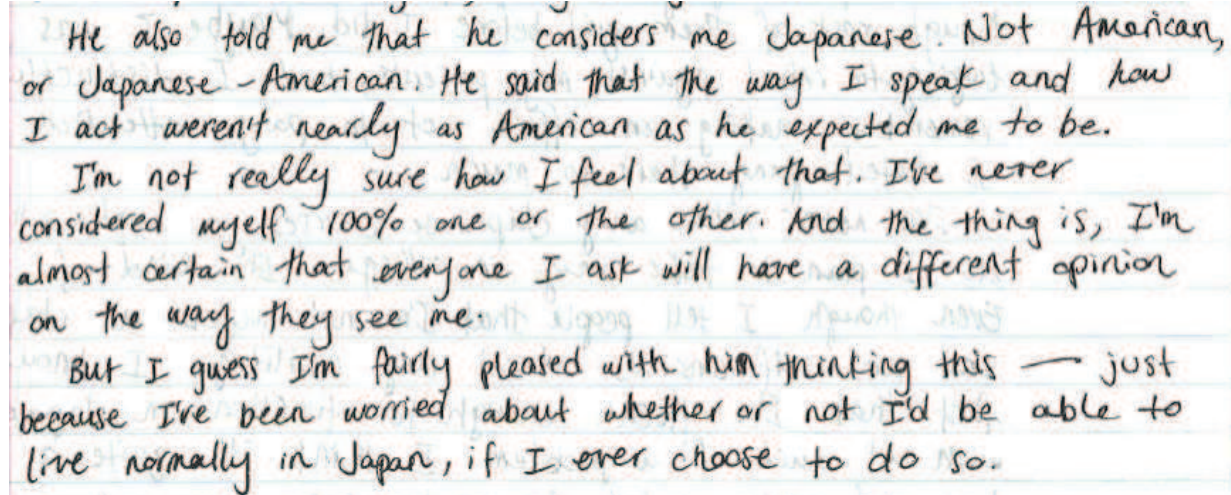 He also told me that he considers me Japanese. Not American,
or Japanese-American. He said that the way I speak and how
I act weren't nearly as American as he expected me to be.
I'm not really sure how I feel about that. I've never
considered myelf 100% one or the other. And the thing is, I'm
almost certain that everyone I ask will have a different opinion
on the way they see me.
But I guess I'm fairly pleased with him thinking this — just
because I've been worried about whether or not I'd be able to
live normally in Japan, if I ever choose to do so.